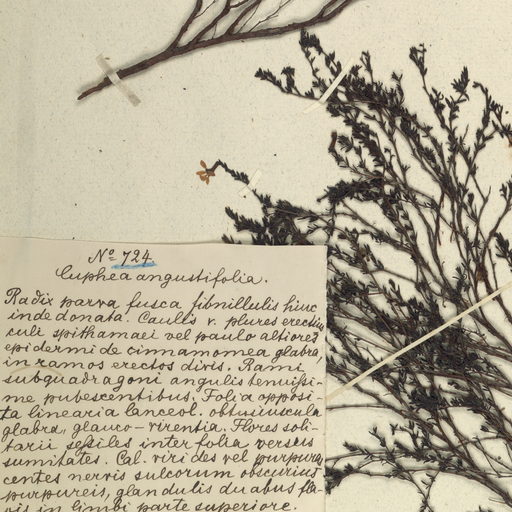 Nº 724.
Cuphea angustifolia.
Radix parva fusca fibrillulis hinc
inde donata. Caulis v. plures erectius
culi spithamaei vel paulo altiores
epidermide cinnamomea glabra,
in ramos erectos divis. Rami
subquadragoni angulis tenuissi-
me pubescentibus. Folia opposi-
ta linearia lanceol. obtusiuscula
glabra, glauco-virentia. Flores soli-
tarii sessiles inter folia versus
sumitates. Cal. virides vel purpura
centes nervis sulcorum obscurius
purpureis, glandulis duabus fla-
vis in limbi parte superiore.